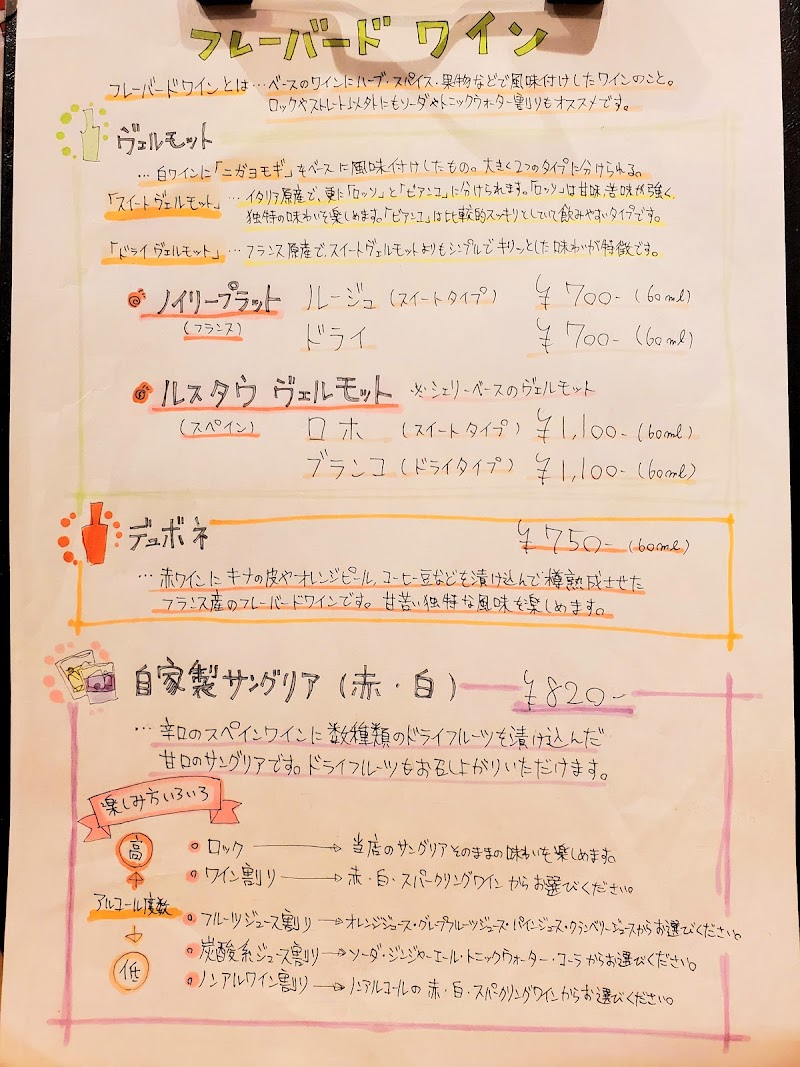 フレーバード ワイン
フレーバードワインとは…ベースのワインにハーブ・スパイス・果物などで風味付けしたワインのこと。
ロックやストレート以外にもソーダやトニックウォーター割りもオススメです。
ヴェルモット
…白ワインに「ニガヨモギ」をベースに風味付けしたもの。大きく2つのタイプに分けられる。
「スイートヴェルモット」…イタリア原産で、更に「ロッソ」と「ビアンコ」に分けられます。「ロッソ」は甘味、苦味が強く、
独特の味わいを楽しめます。「ビアンコ」は比較的スッキリとしていて飲みやすいタイプです。
「ドライヴェルモット」…フランス原産で、スイートヴェルモットよりもシンプルでキリッとした味わいが特徴です。
ノイリープラット ルージュ(スイートタイプ) ¥700-(60ml)
(フランス) ドライ ¥700-(60ml)
ルスタウ ヴェルモット ※シェリーベースのヴェルモット
(スペイン) ロホ (スイートタイプ) ¥1,100-(60ml)
ブランコ(ドライタイプ) ¥1,100-(60ml)
デュボネ ¥750-(60ml)
…赤ワインにキナの皮やオレンジピール,コーヒー豆などを漬け込んで樽熟成させた
フランス産のフレーバードワインです。甘苦い独特な風味を楽しめます。
自家製サングリア(赤・白) ¥820-
…辛口のスペインワインに数種類のドライフルーツを漬け込んだ
甘口のサングリアです。ドライフルーツもお召し上がりいただけます。
楽しみ方いろいろ
高
ロック→当店のサングリアそのままの味わいを楽しめます。
ワイン割り→赤・白・スパークリングワインからお選びください。
アルコール度数
フルーツジュース割り→オレンジジュース・グレープフルーツジュース・パインジュース・クランベリージュースからお選びください。
炭酸系ジュース割り→ソーダ・ジンジャーエール・トニックウォーター・コーラからお選びください。
低
ノンアルワイン割り→ノンアルコールの赤・白・スパークリングワインからお選びください。